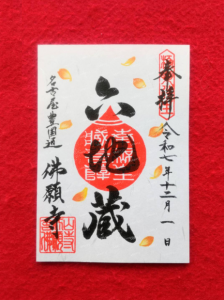 奉拝
令和七年十二月一日
六地蔵
名古屋豊国通
佛願寺